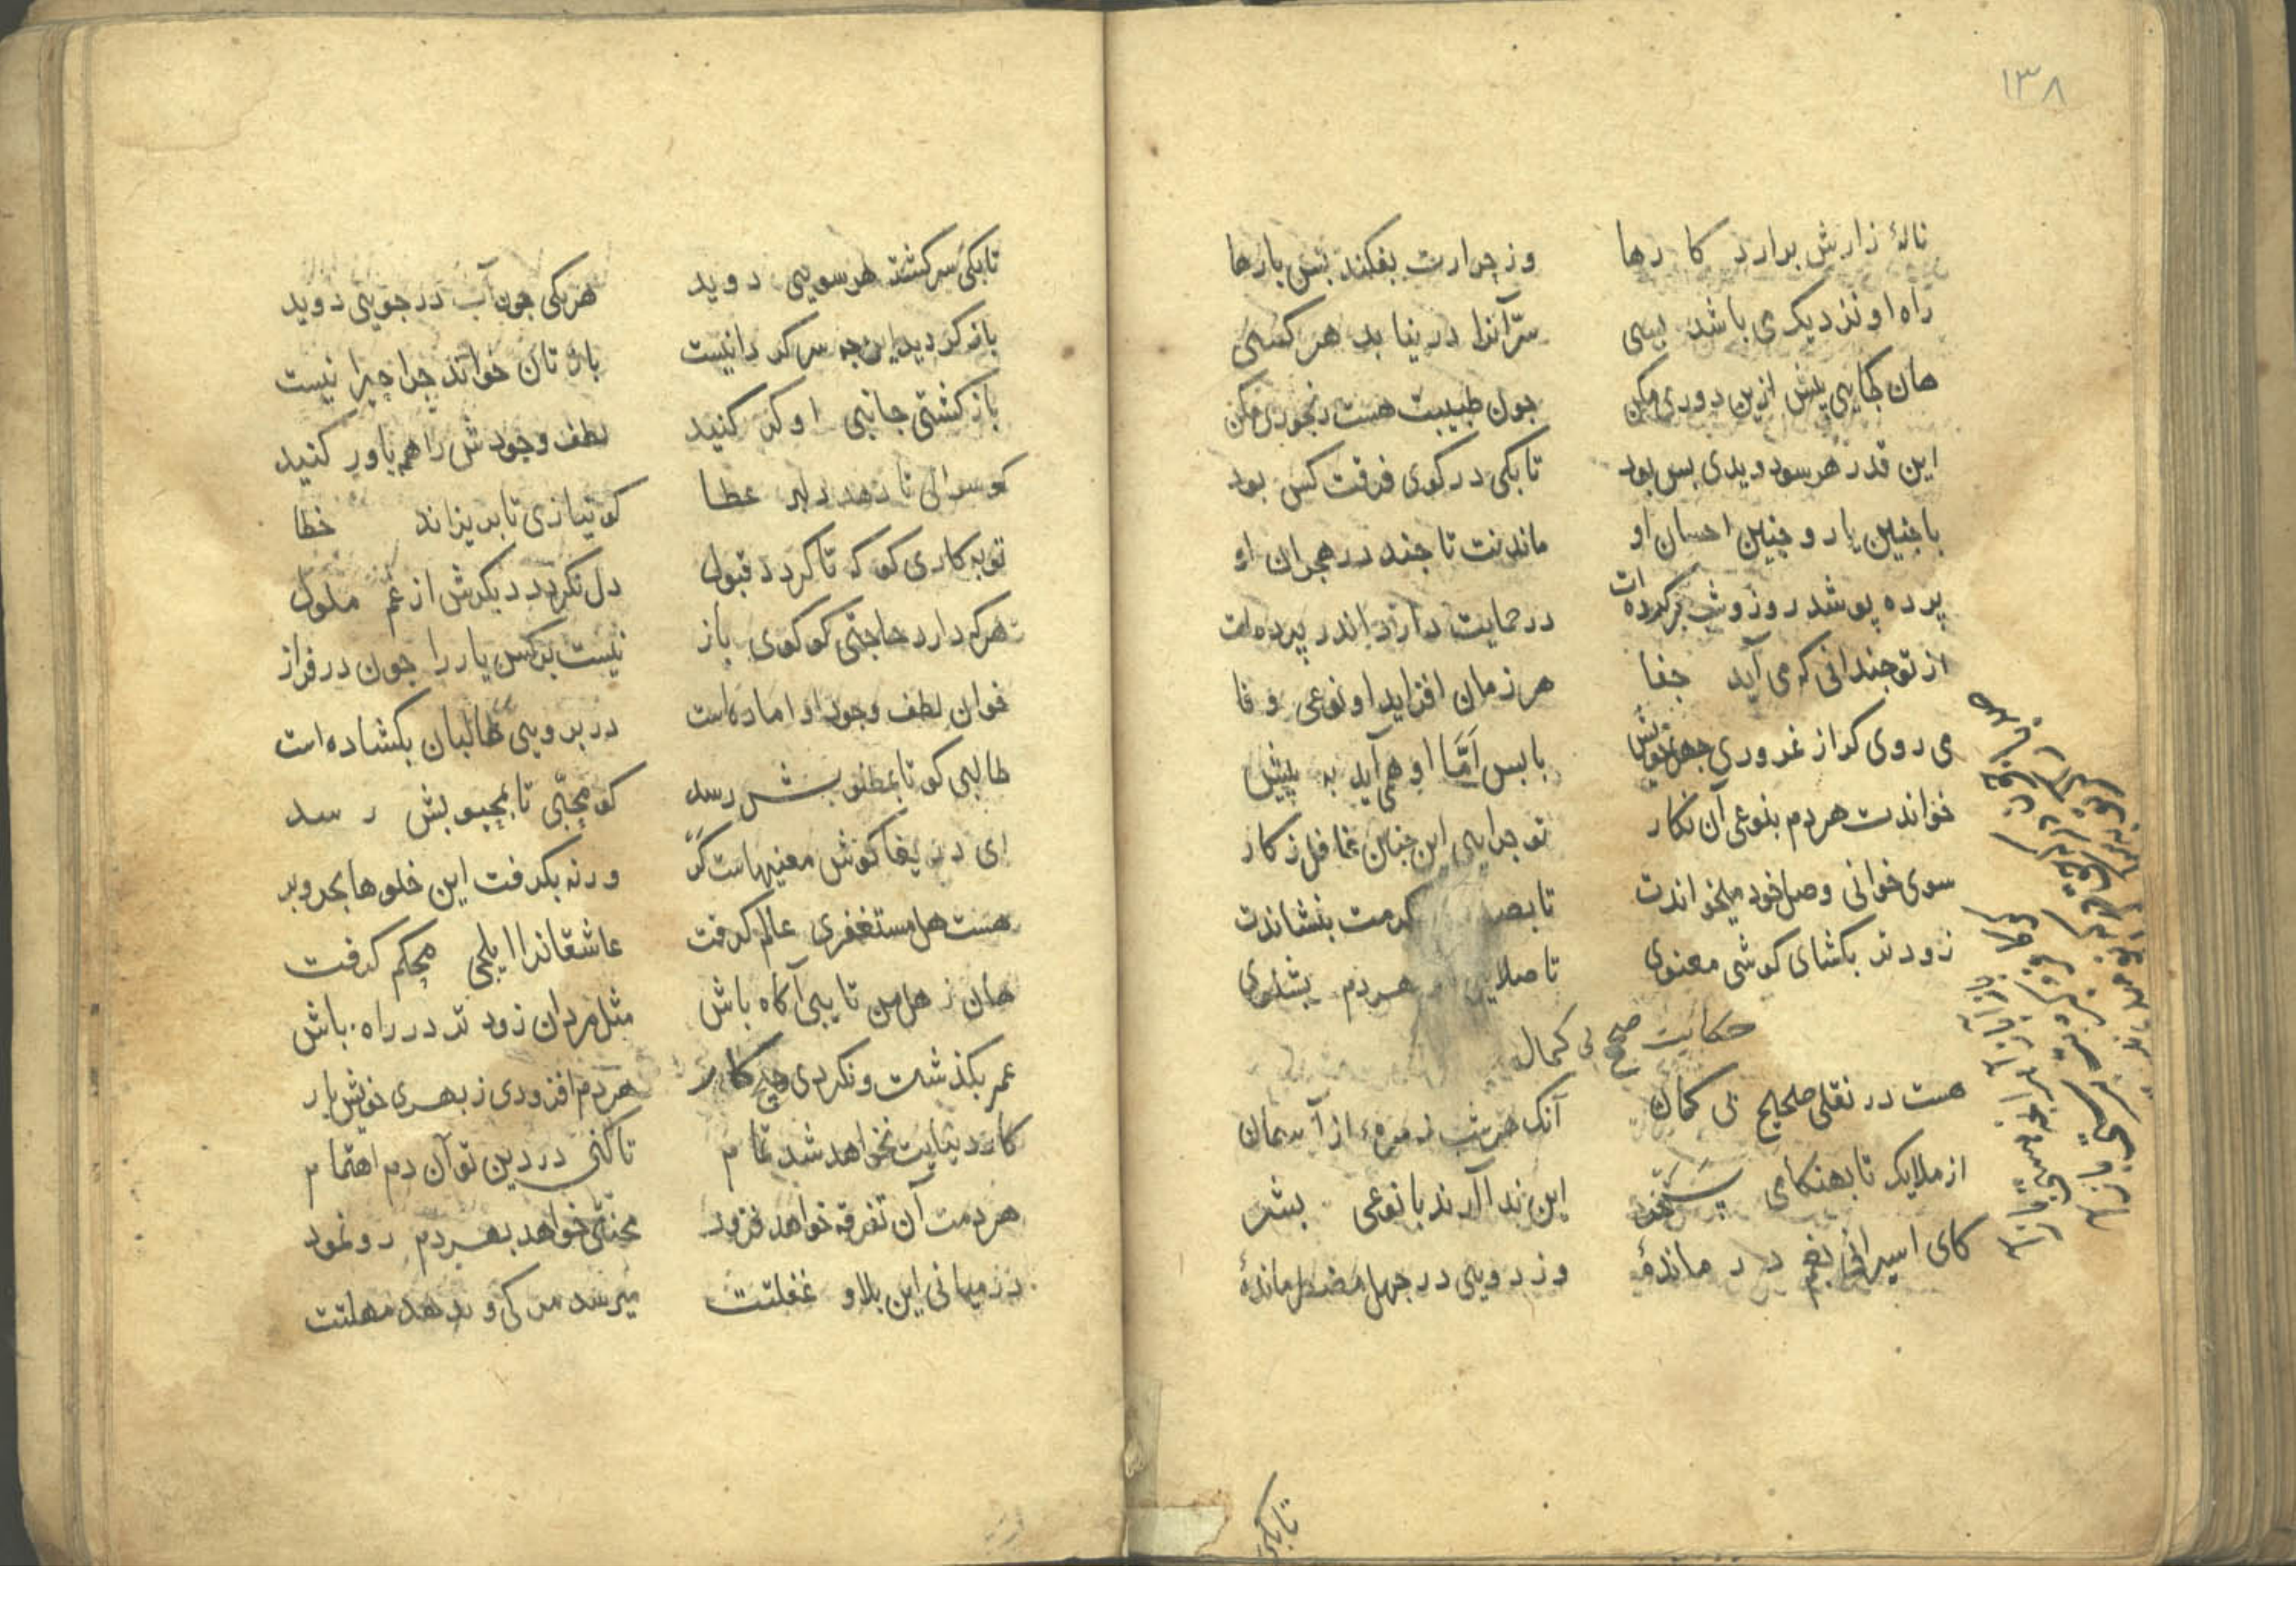 ١٣٨
نالهٔ زارش برارد کارها وز جرارت بفکند بس بارها
راه او نزدیک می باشد بسی سرّ آنرا در نیابد هر کسی
هان کجایی پیش ازین دوری مکن جون طبیبت هست رنجوری مکن
این قدر هر سو دویدی بس بود تا بکی در کوی فرقت کس بود
با جنین یار و جنین احسان او ماندنت تا جند در هجران او
پرده پوشد روز و شب بر کرده ات در حمایت دارد اندر پرده ات
از تو جندانی که می آید جفا هر زمان افزاید او نوعی وفا
می روی کر از غروری جهل خویش بابس امّا او همی آید به پیش
خواندت هر دم بنوعی آن نکار تو جرایی این جنین غافل ز کار
سوی خوانی وصل خود میخواندت تا بصد کرمت بنشاندت
زودتر بکشای کوشی معنوی تا صلایی هر دم بشنوی
حکایت صحیح بی کمال
هست در نقلی صحیح بی کمان آنک هر شب زمرهٔ از آسمان
از ملایک تا بهنکامی سحر این ندا آرند با نوعی بشر
کای اسیرانی بغم درماندهٔ وز درونی در جهل مضطر ماندهٔ
تا بکی
تا بکی سرکشته هر سویی دوید هر یکی جون آب در جویی دوید
باز کردید این جه سر کردانیست باز تان خواند جرا جیرانیست
باز کشتی جانبی او کر کنید لطف وجودش را هم باور کنید
کو سوالی تا دهد دلبر عطا کو نیازی تا بریزاند خطا
توبه کاری کو که تا کردد قبول دل نکردد دیکرش از غم ملول
هر که دارد حاجتی کو کوی باز نیست بر کس یار را جون در فراز
خوان لطف وجود او اماده است در برویی طالبان بکشاده است
طالبی کو تا بمطلوبش رسد کو محبّی تا بمحبوبش رسد
ای دریغا کوش معنیهاست کر ورنه بکرفت این خلوها بحر و بر
هست هل مستغفری عالم کرفت عاشقانرا ایلجی محکم کرفت
هان ز هل من تایبی آکاه باش مثل مردان زودتر در راه باش
عمر بکذشت و نکردی هیج کار هر دم افزودی ز بهری خویش بار
کار دنیایت نخواهد شد تمام تا کنی در دین تو آن دم اهتمام
هر دمت آن تفرقه خواهد فزود محنتی خواهد بهر دم رو نمود
در میانی این بلا و غفلتت میرسد مرکی و ندهد مهلتت